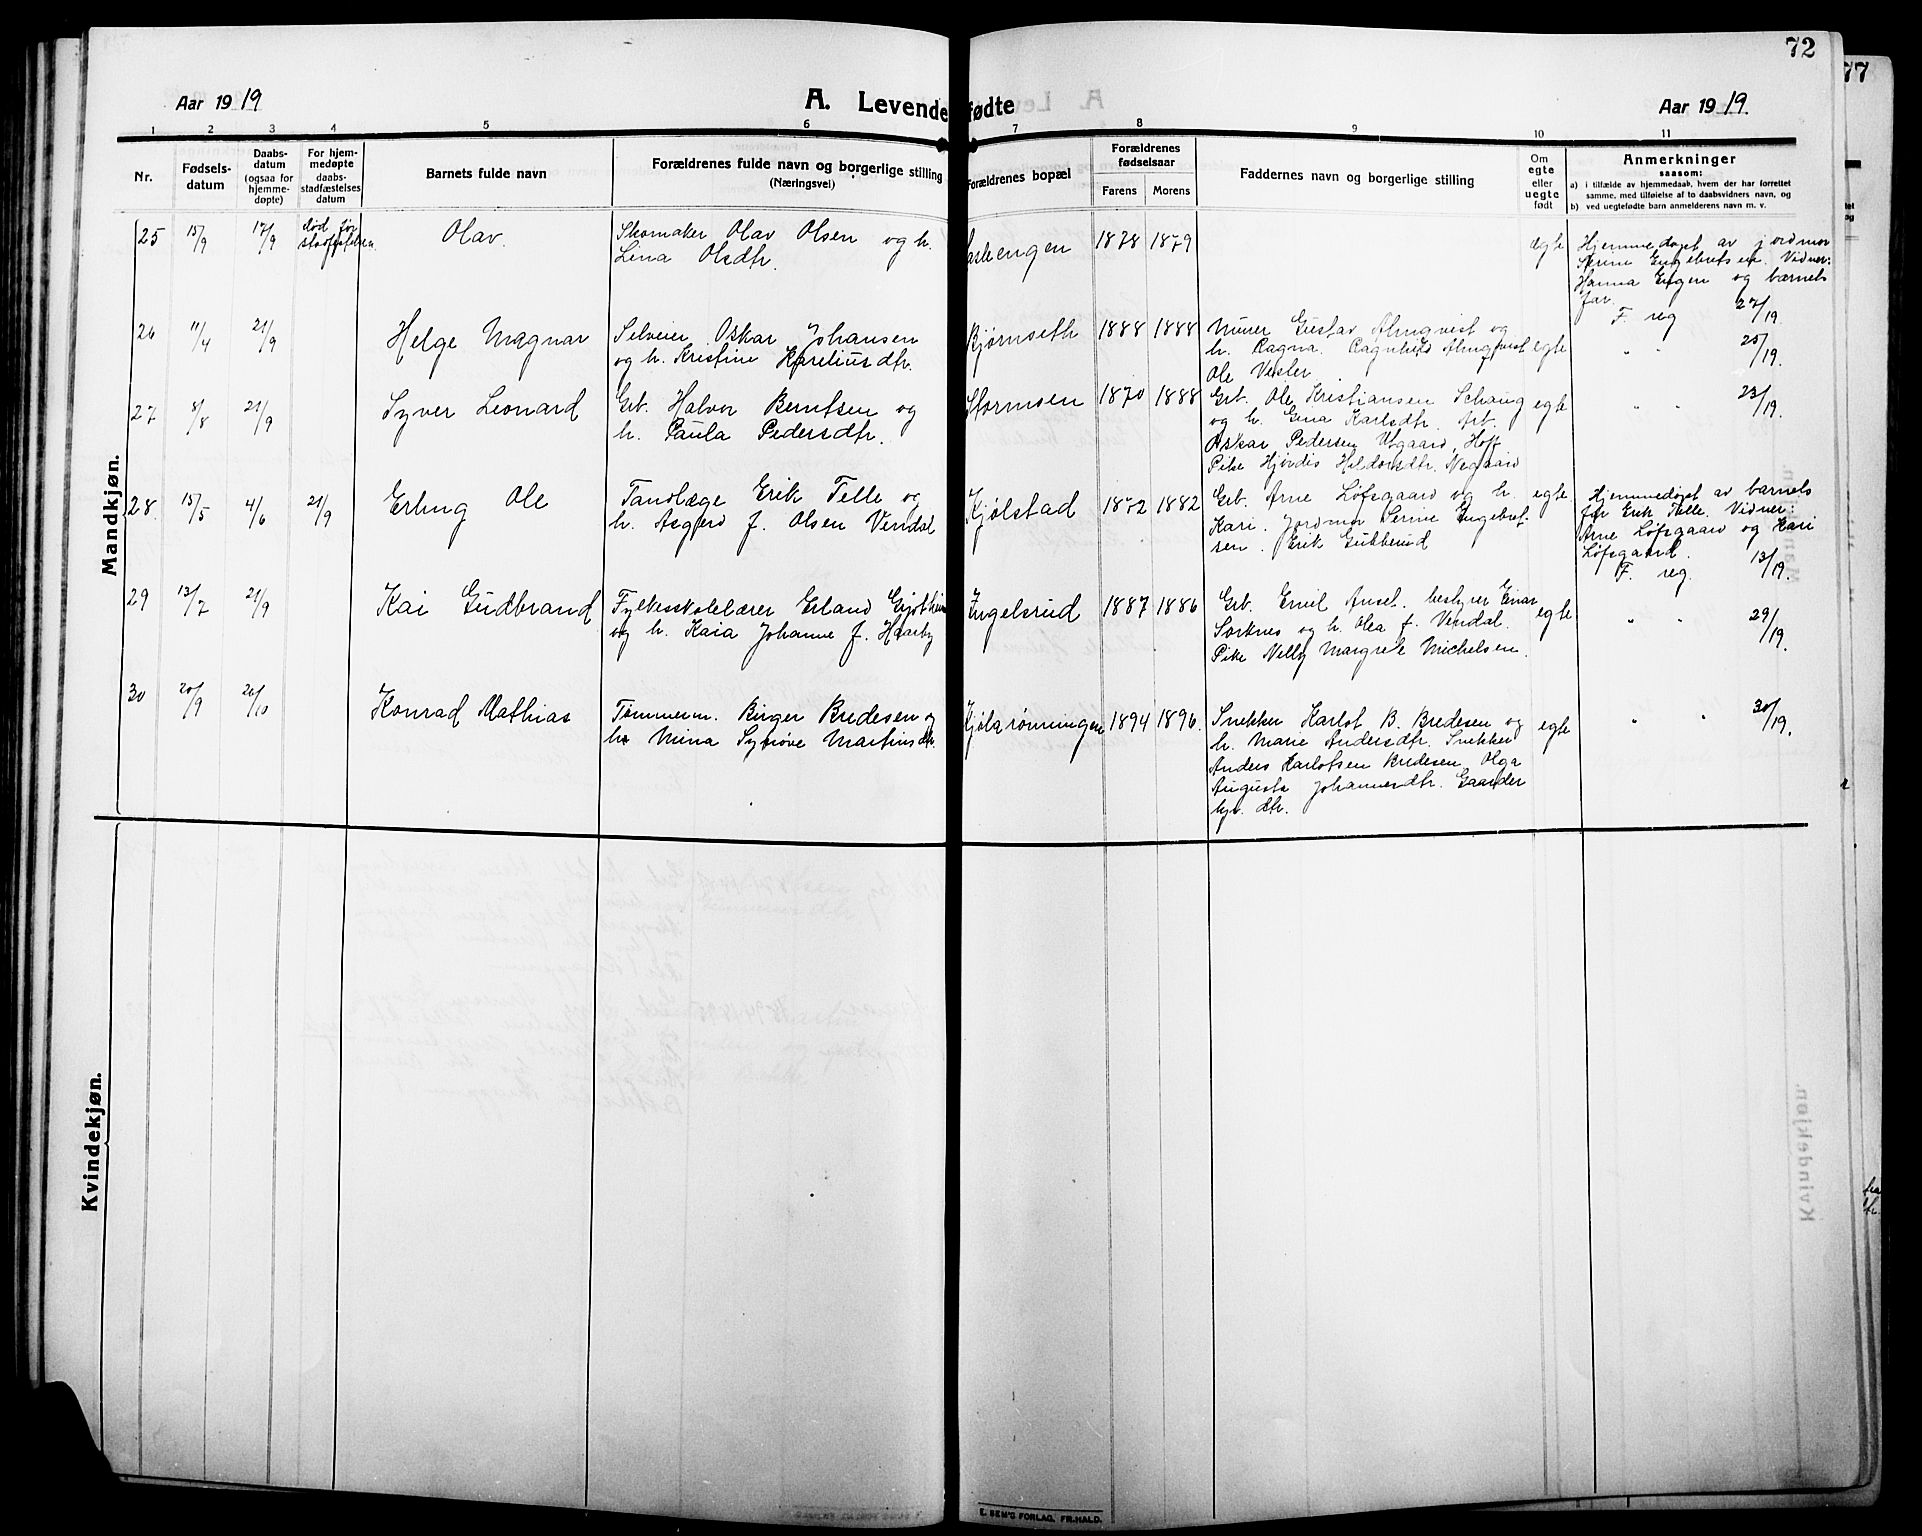 72
77
Aar 1919
A. Levendefødte
Aar 1919.
1 2 3 4 5 6 7 8 9 10 11
Nr.
Fødsels-
datum
Daabs-
datum
(ogsaa for
hjemme-
døpte)
For hjem-
medøpte
daabs-
stadfæstelses
datum
Barnets fulde navn
Forældrenes fulde navn og borgerlige stilling
(Næringsvei)
Forældrenes bopæl
Forældrenes
fødselsaar
Farens Morens
Faddernes navn og borgerlige stilling
Om
egte
eller
uegte
født
Anmerkninger
saasom:
a) i tilfælde av hjemmedaab, hvem der har forrettet
samme, med tilføielse af to daabsvidners navn, og
b) ved uegtefødte barn anmelderens navn m. v.
Mandkjøn.
25 15/9 17/9 død før
Olav.
Skomaker Olav Olsen og h.
Lina Olsdtr.
1878 1879
egte
Hjemmedøpt av jordmor
Serine Engebretsen. Vidner:
Hanna Engen og barnets
far.
F. reg 27/19.
26 11/4 21/9
Helge Magnar
Selveier Oskar Johansen
og h. Kristine Kareliusdtr.
Bjørnseth
1888 1888
Murer Gustav Almqvist og
h. Ragna. Ragnhild Almqvist
Ole Vesler
egte
" " 25/19.
27 8/8 21/9
Syver Leonard
Grb. Halvor Berntsen og
h. Paula Pedersdtr.
Stormoen
1870 1888
Grb. Ole Kristiansen Schaug
og h. Gina Karlsdtr. Arb.
Oskar Pedersen
Pike Hjørdis Haldorsdtr. Negaard
egte
" " 23/19.
28. 15/5 4/6 21/9
Erling Ole
Tandlæge Erik Telle og
h. Asgerd f. Olsen Vendal
Kjølstad
1872 1882
Grb. Arne Løfsgaard og h.
Kari. Jordmor Serine Engebret-
sen. Erik Gubberud
egte
Hjemmedøpt av barnets
far Erik Telle. Vidner:
Arne Løfsgaard og Kari
Løfsgaard.
F. reg. 13/19.
29 13/7 21/9
Kai Gudbrand
Fylkesskolelærer Erland
og h. Kaia Johanne f. Haarby
Engelsrud
1887 1886
Grb. Emil Anset. bestyrer Einar
Sorknes og h. Olea f. Vendal.
Pike Nelly Margrete Michelsen.
egte
" " 29/19.
30 20/9 26/10
Konrad Mathias
Tømmerm. Birger Bredesen og
h. Mina Synøve Martinsdtr.
Kjølarønningen
1894 1896.
Snekker Karlot B. Bredesen og
h. Marie Andersdtr. Snekker
Anders Karlotsen Bredesen, Olga
Augusta Johannesdtr. Gaarder
dtr.
egte
" " 30/19.
Kvindekjøn.
E. SEM'S FORLAG, FR.HALD.